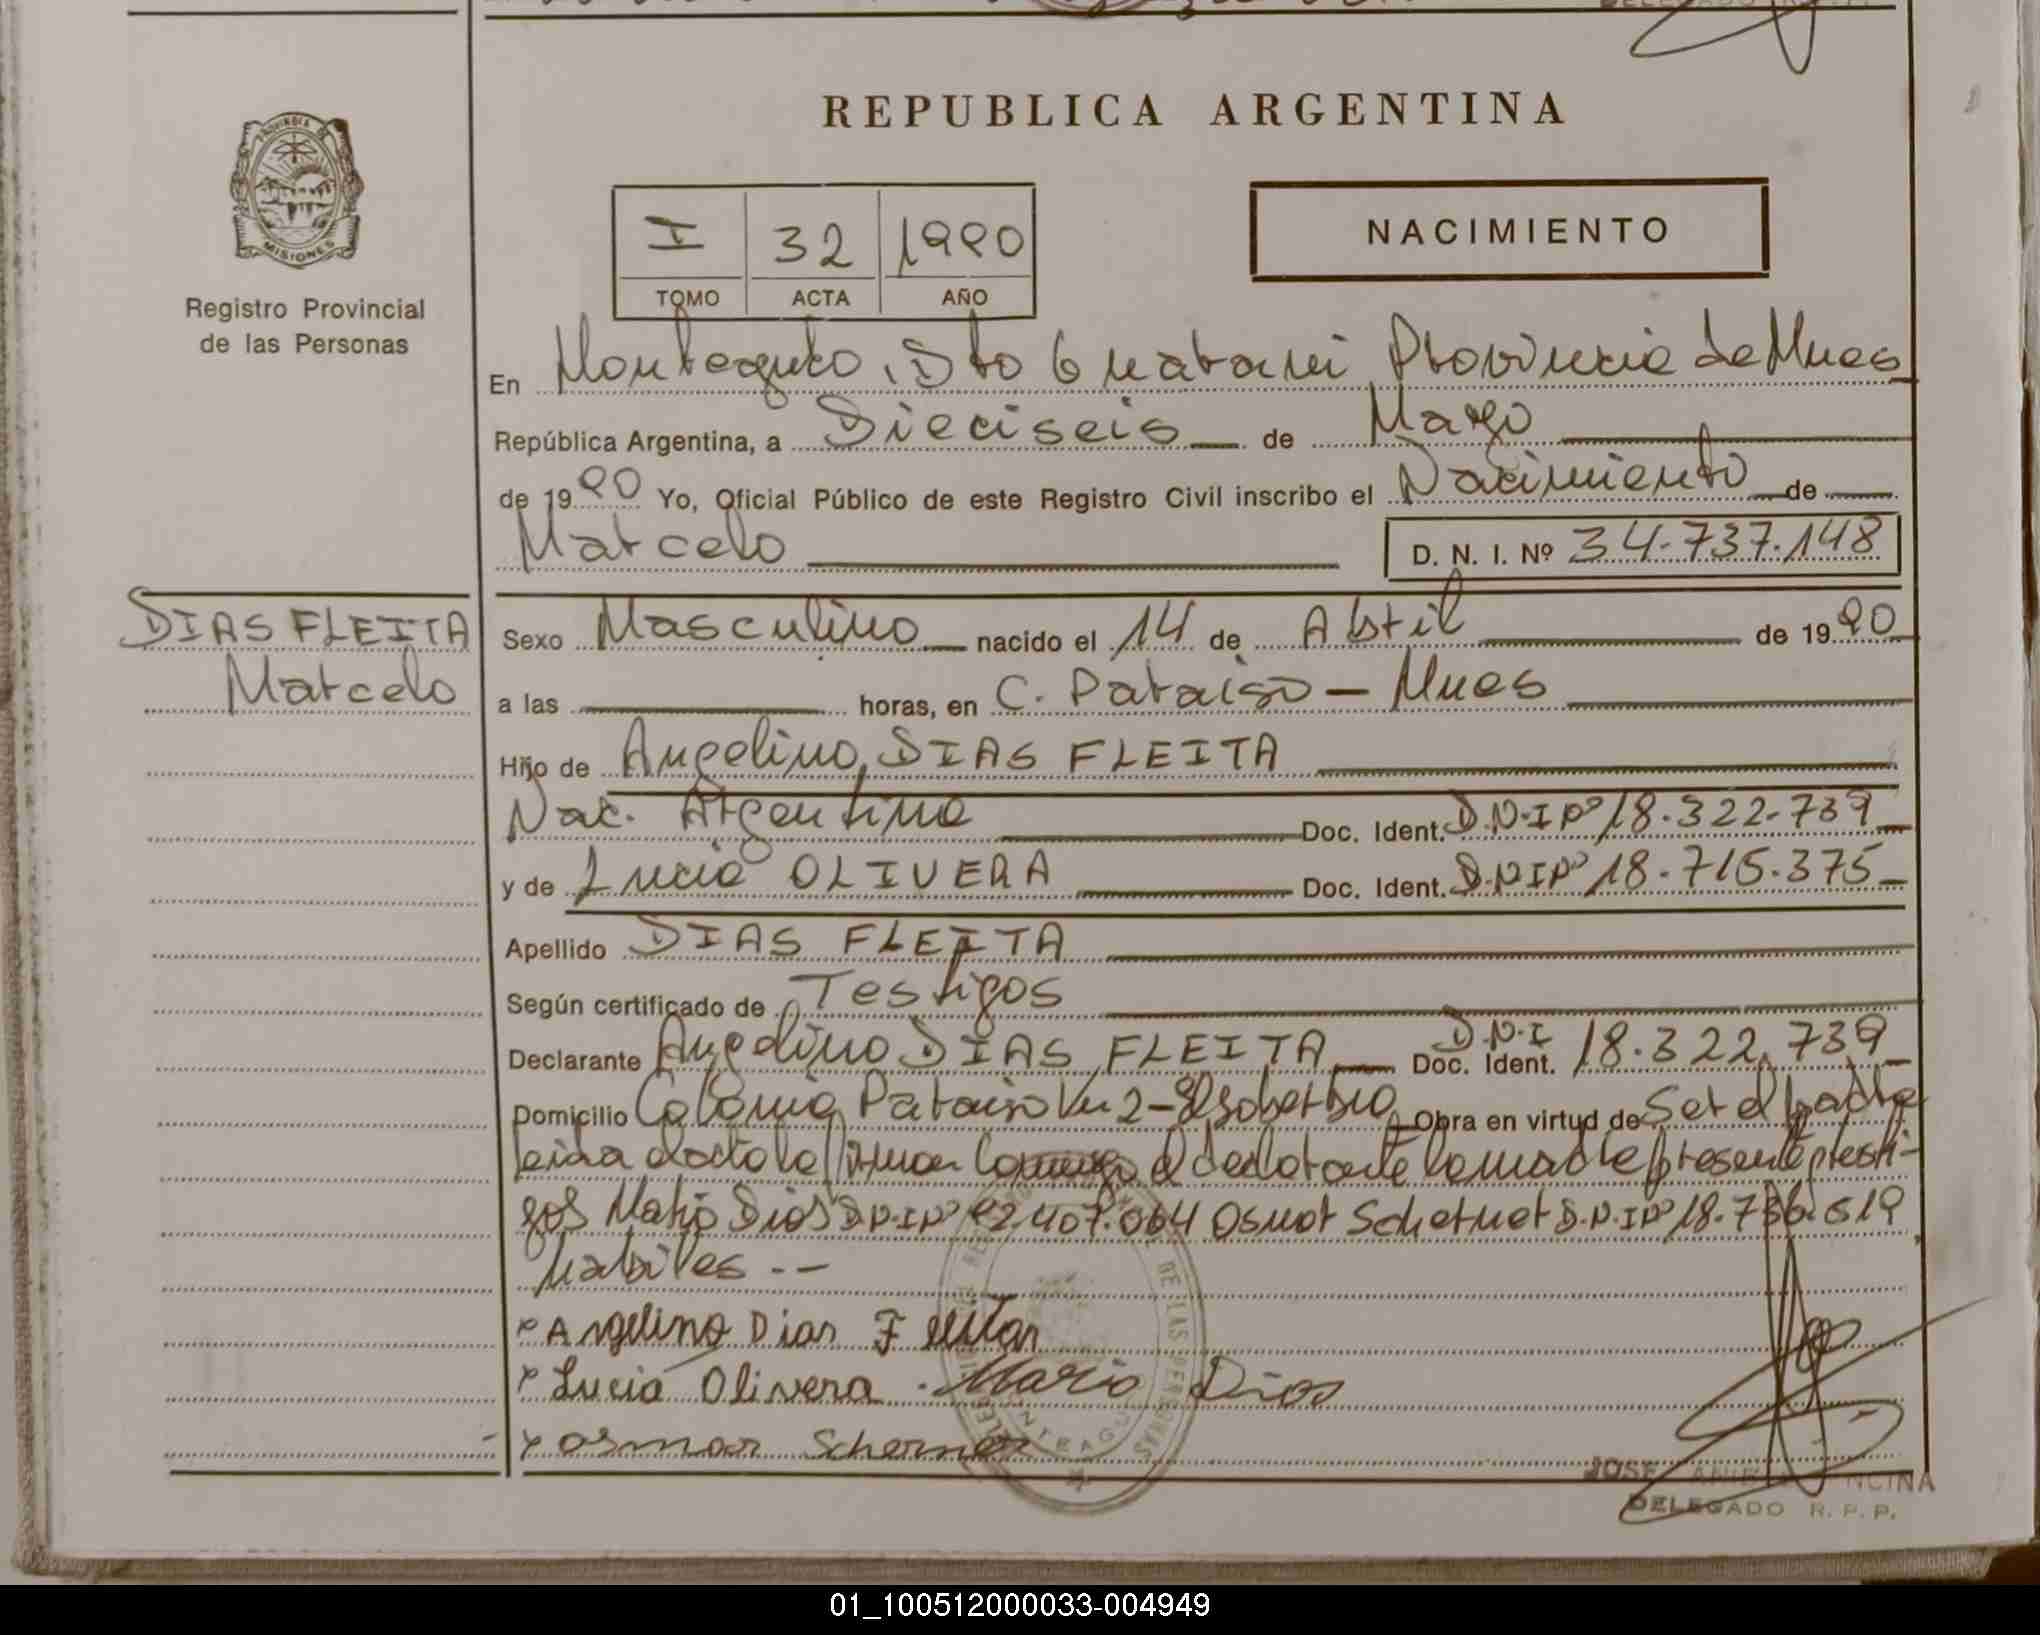 REPUBLICA ARGENTINA
PROVINCIA DE
MISIONES
Registro Provincial
de las Personas
I 32 1990
TOMO ACTA AÑO
NACIMIENTO
En Monteagudo, Dto Guarani Provincia de Mnes
República Argentina, a Dieciseis de Mayo
de 1990 Yo, Oficial Público de este Registro Civil inscribo el Nacimiento de
Marcelo D. N. I. Nº 34.737.148
DIAS FLEITA
Marcelo
Sexo Masculino nacido el 14 de Abril de 1990
a las horas, en C. Paraiso - Mnes
Hijo de Angelino DIAS FLEITA
Nac. Argentino Doc. Ident. D.N.I Nº 18.322.739
y de Lucia OLIVERA Doc. Ident. D.N.I Nº 18.715.375
Apellido DIAS FLEITA
Según certificado de Testigos
Declarante Angelino DIAS FLEITA Doc. Ident. D.N.I 18.322.739
Domicilio Colonia Paraiso Km 2 - El Soberbio Obra en virtud de Ser el padre
leida el acta la firman Conmigo el declarante la madre presente y testi-
gos Mario Dias D.N.I Nº 407.064 Osmar Scherner D.N.I Nº 18.736.519
habiles . -
x Angelino Dias Fleitar
x Lucia Olivera . Mario Dias
x osmar Scherner
DE LAS PERSONAS
JOSE
DELEGADO R. P. P.
01_100512000033-004949